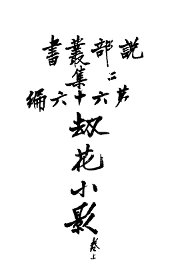 說部叢書
二集
第六十六編
刼花小影
卷上